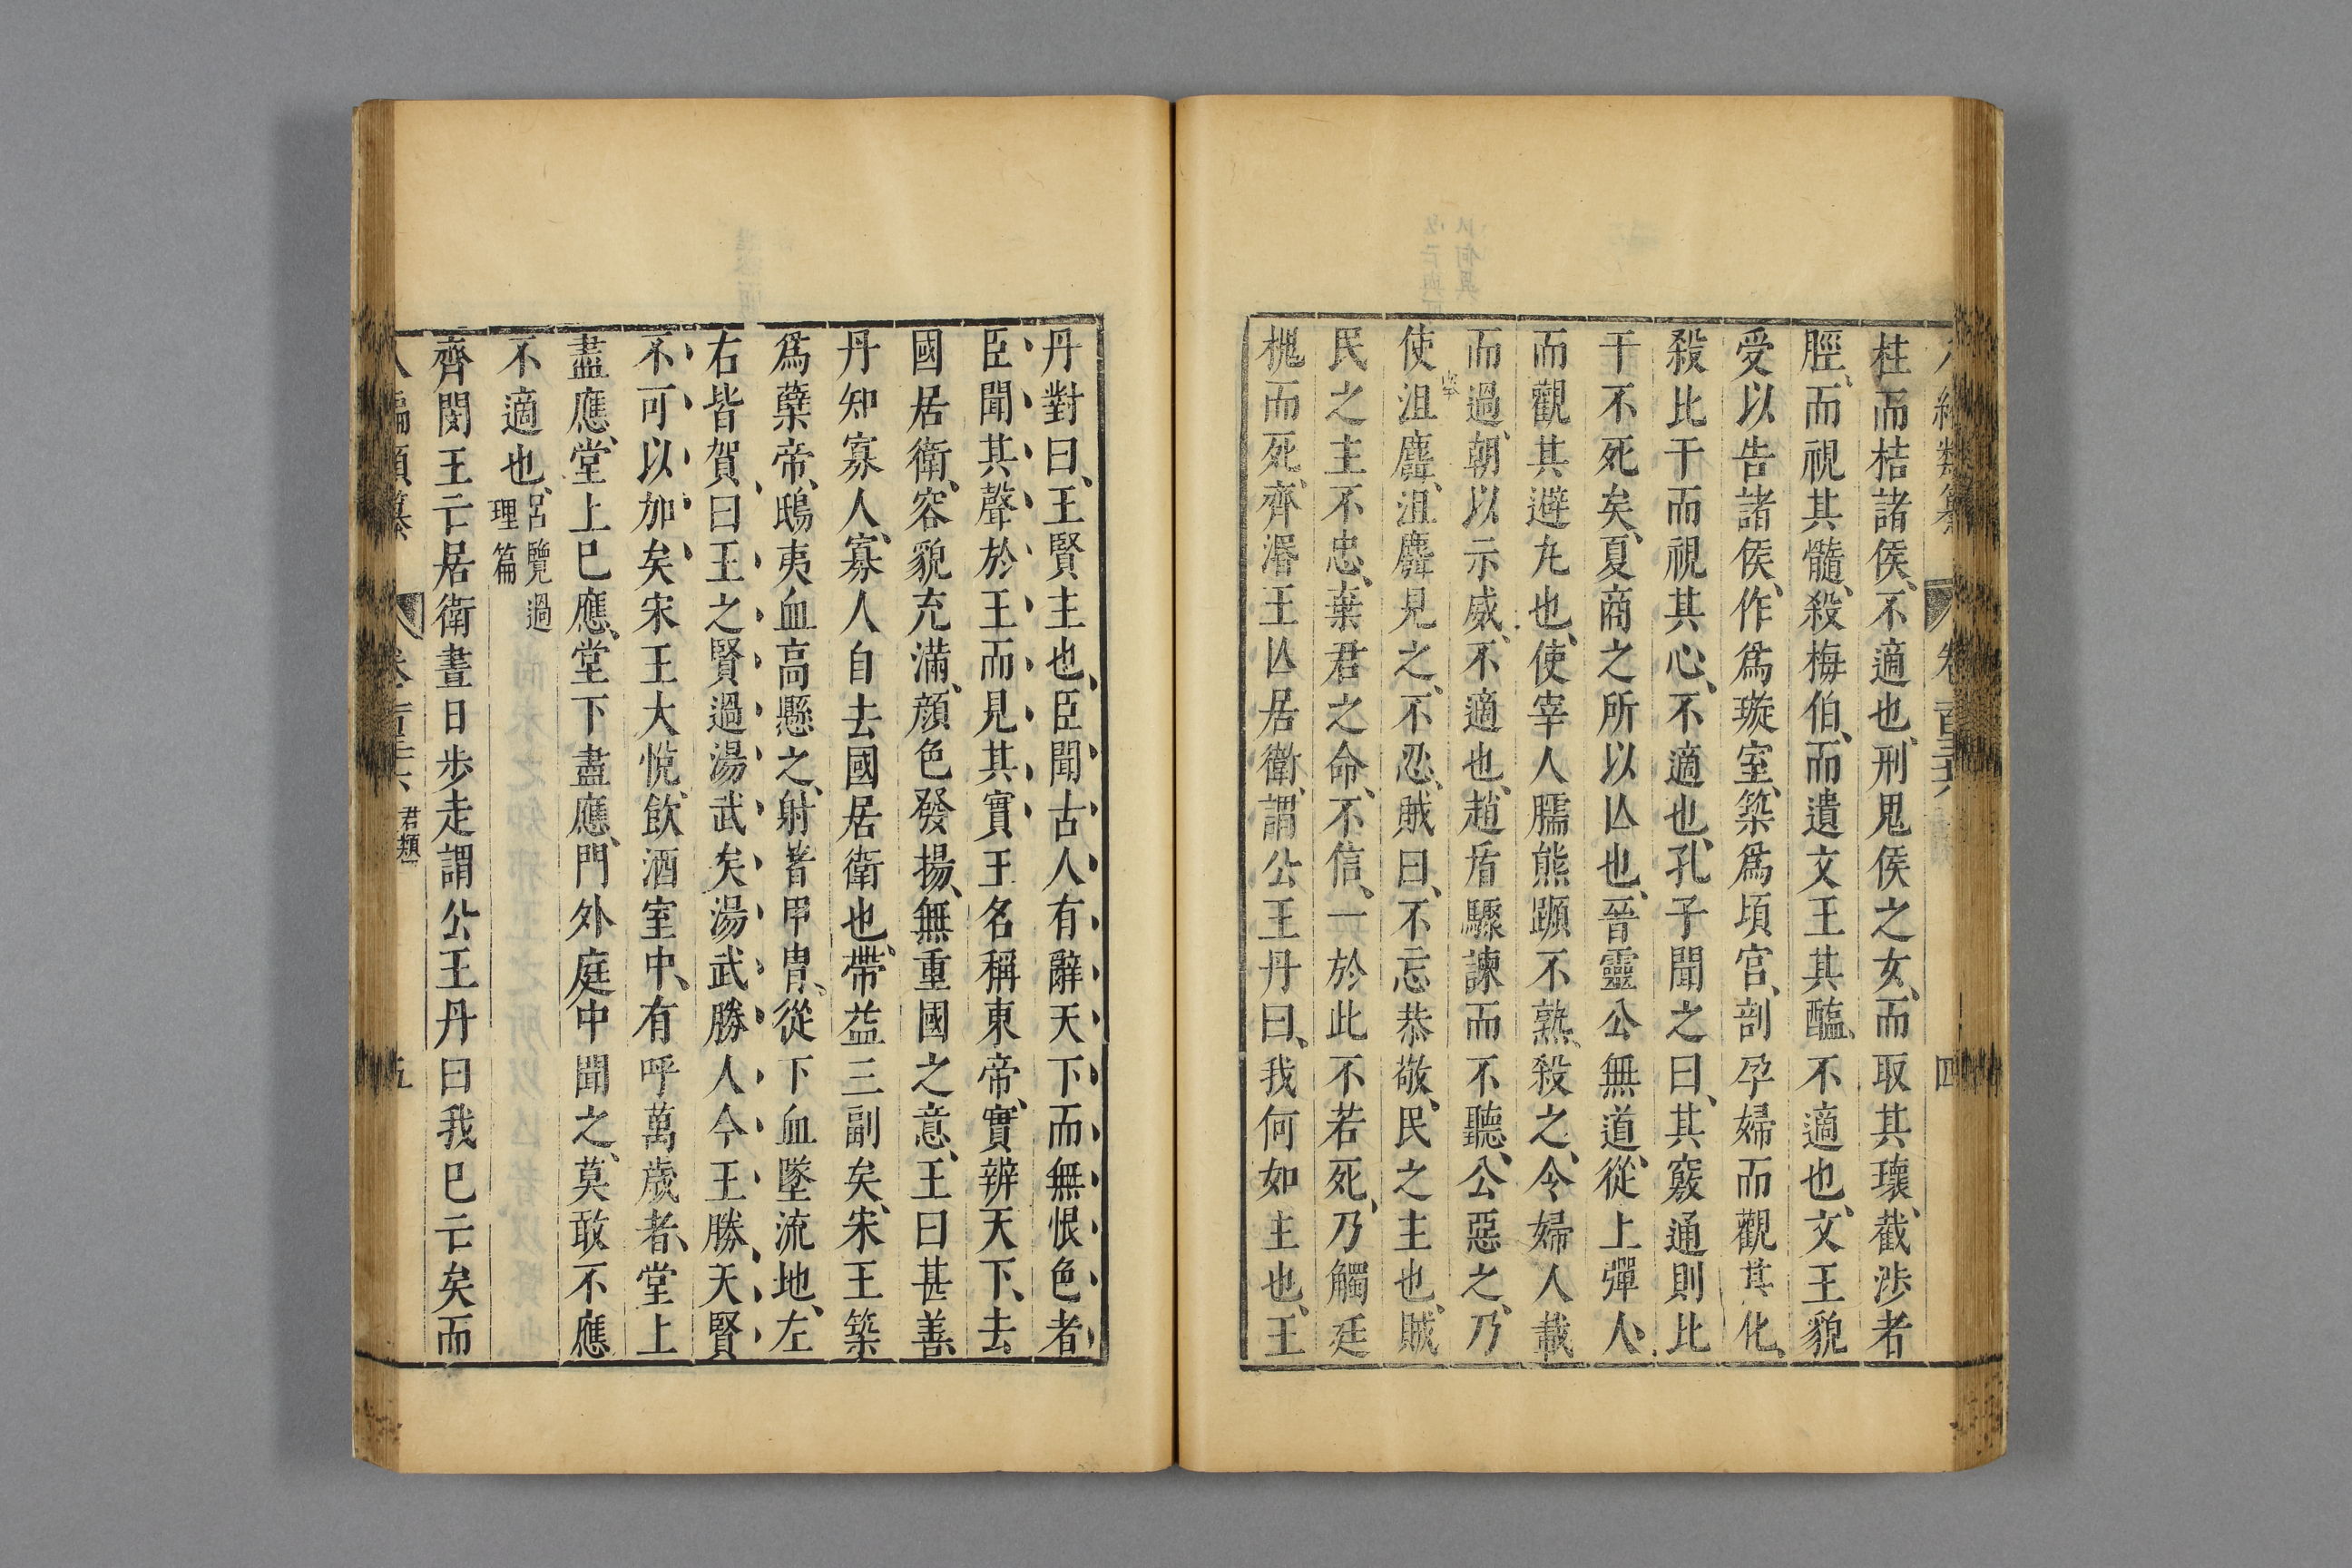 柱而桔諸侯、不適也、刑鬼侯之女、而取其瓌、截涉者
脛、而視其髓、殺梅伯、而遺文王其醢、不適也、文王貌
受以告諸侯、作爲璇室、築爲頃宮、剖孕婦而觀其化、
殺比干而視其心、不適也、孔子聞之曰、其竅通則比
干不死矣、夏商之所以亾也、晉靈公無道、從上彈人、
而觀其避丸也、使宰人臑熊蹯不熟、殺之、令婦人載
而過朝、以示威、不適也、趙盾驟諫而不聽、公惡之、乃
使沮麛、沮麛見之、不忍、賊曰、不忘恭敬、民之主也、賊
民之主不忠、棄君之命、不信、一於此不若死、乃觸廷
槐而死、齊湣王亾居衛、謂公王丹曰、我何如主也、王
丹對曰、王賢主也、臣聞古人有辭天下而無恨色者
臣聞其聲於王而見其實王名稱東帝、實辨天下、去
國居衛、容貌充滿、顔色發揚、無重國之意、王曰甚善、
丹知寡人、寡人自去國居衛也、帶益三副矣、宋王築
爲蘖帝、鴟夷血高懸之、射著甲冑、從下血墜流地、左
右皆賀、曰王之賢過湯武矣湯武勝人今王勝天賢
不可以加矣宋王大悅、飲酒室中、有呼萬歲者、堂上
盡應、堂上巳應、堂下盡應、門外庭中聞之、莫敢不應
不適也、呂覽過
理篇
齊閔王亡居衛晝日步走謂公王丹曰我巳亡矣而
君類
五